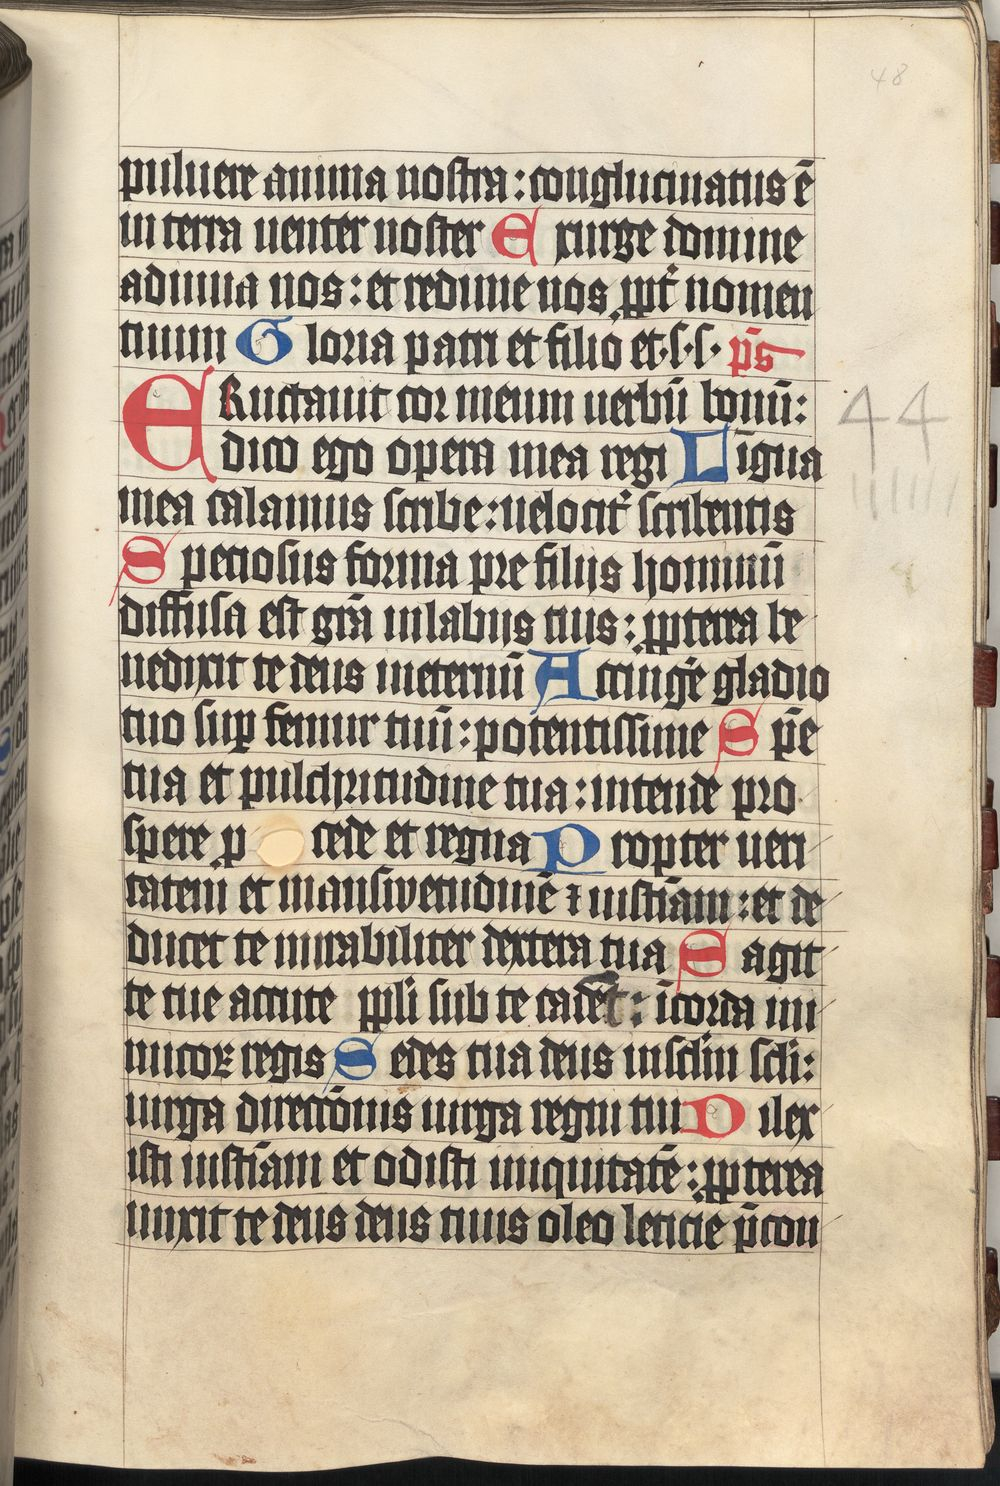 48
puluere anima nostra: conglutinatus ē
in terra uenter noster Exurge domine
adiuua nos: et redime nos ꝓpt̾ nomen
tuum Gloria patri et filio et·s·s· p̄s
ERuctauit cor meum uerbū bonū:
dico ego opera mea regi Līgua
44
mea calamus scribe: uelocit̾ scribentis
Speciosus forma pre filijs hominū
diffusa est grā in labijs tuis: ꝓpterea be
nedixit te deus in eternū Accinge gladio
tuo suꝑ femur tuū: potentissime Sp̄e
tua et pulchritudine tua: intende pro
spere ꝓcede et regna Propter ueri
tatem et mansuetudinē ⁊ iustiām: et de
ducet te mirabiliter dextera tua Sagit
te tue acute ppli sub te cadēt: ī corda ini
micoꝝ regis Sedes tua deus in sclm scli:
uirga directōnis uirga regni tui Dilex
isti iustiām et odisti iniquitatē: ꝓpterea
unxit te deus deus tuus oleo leticie p̄con